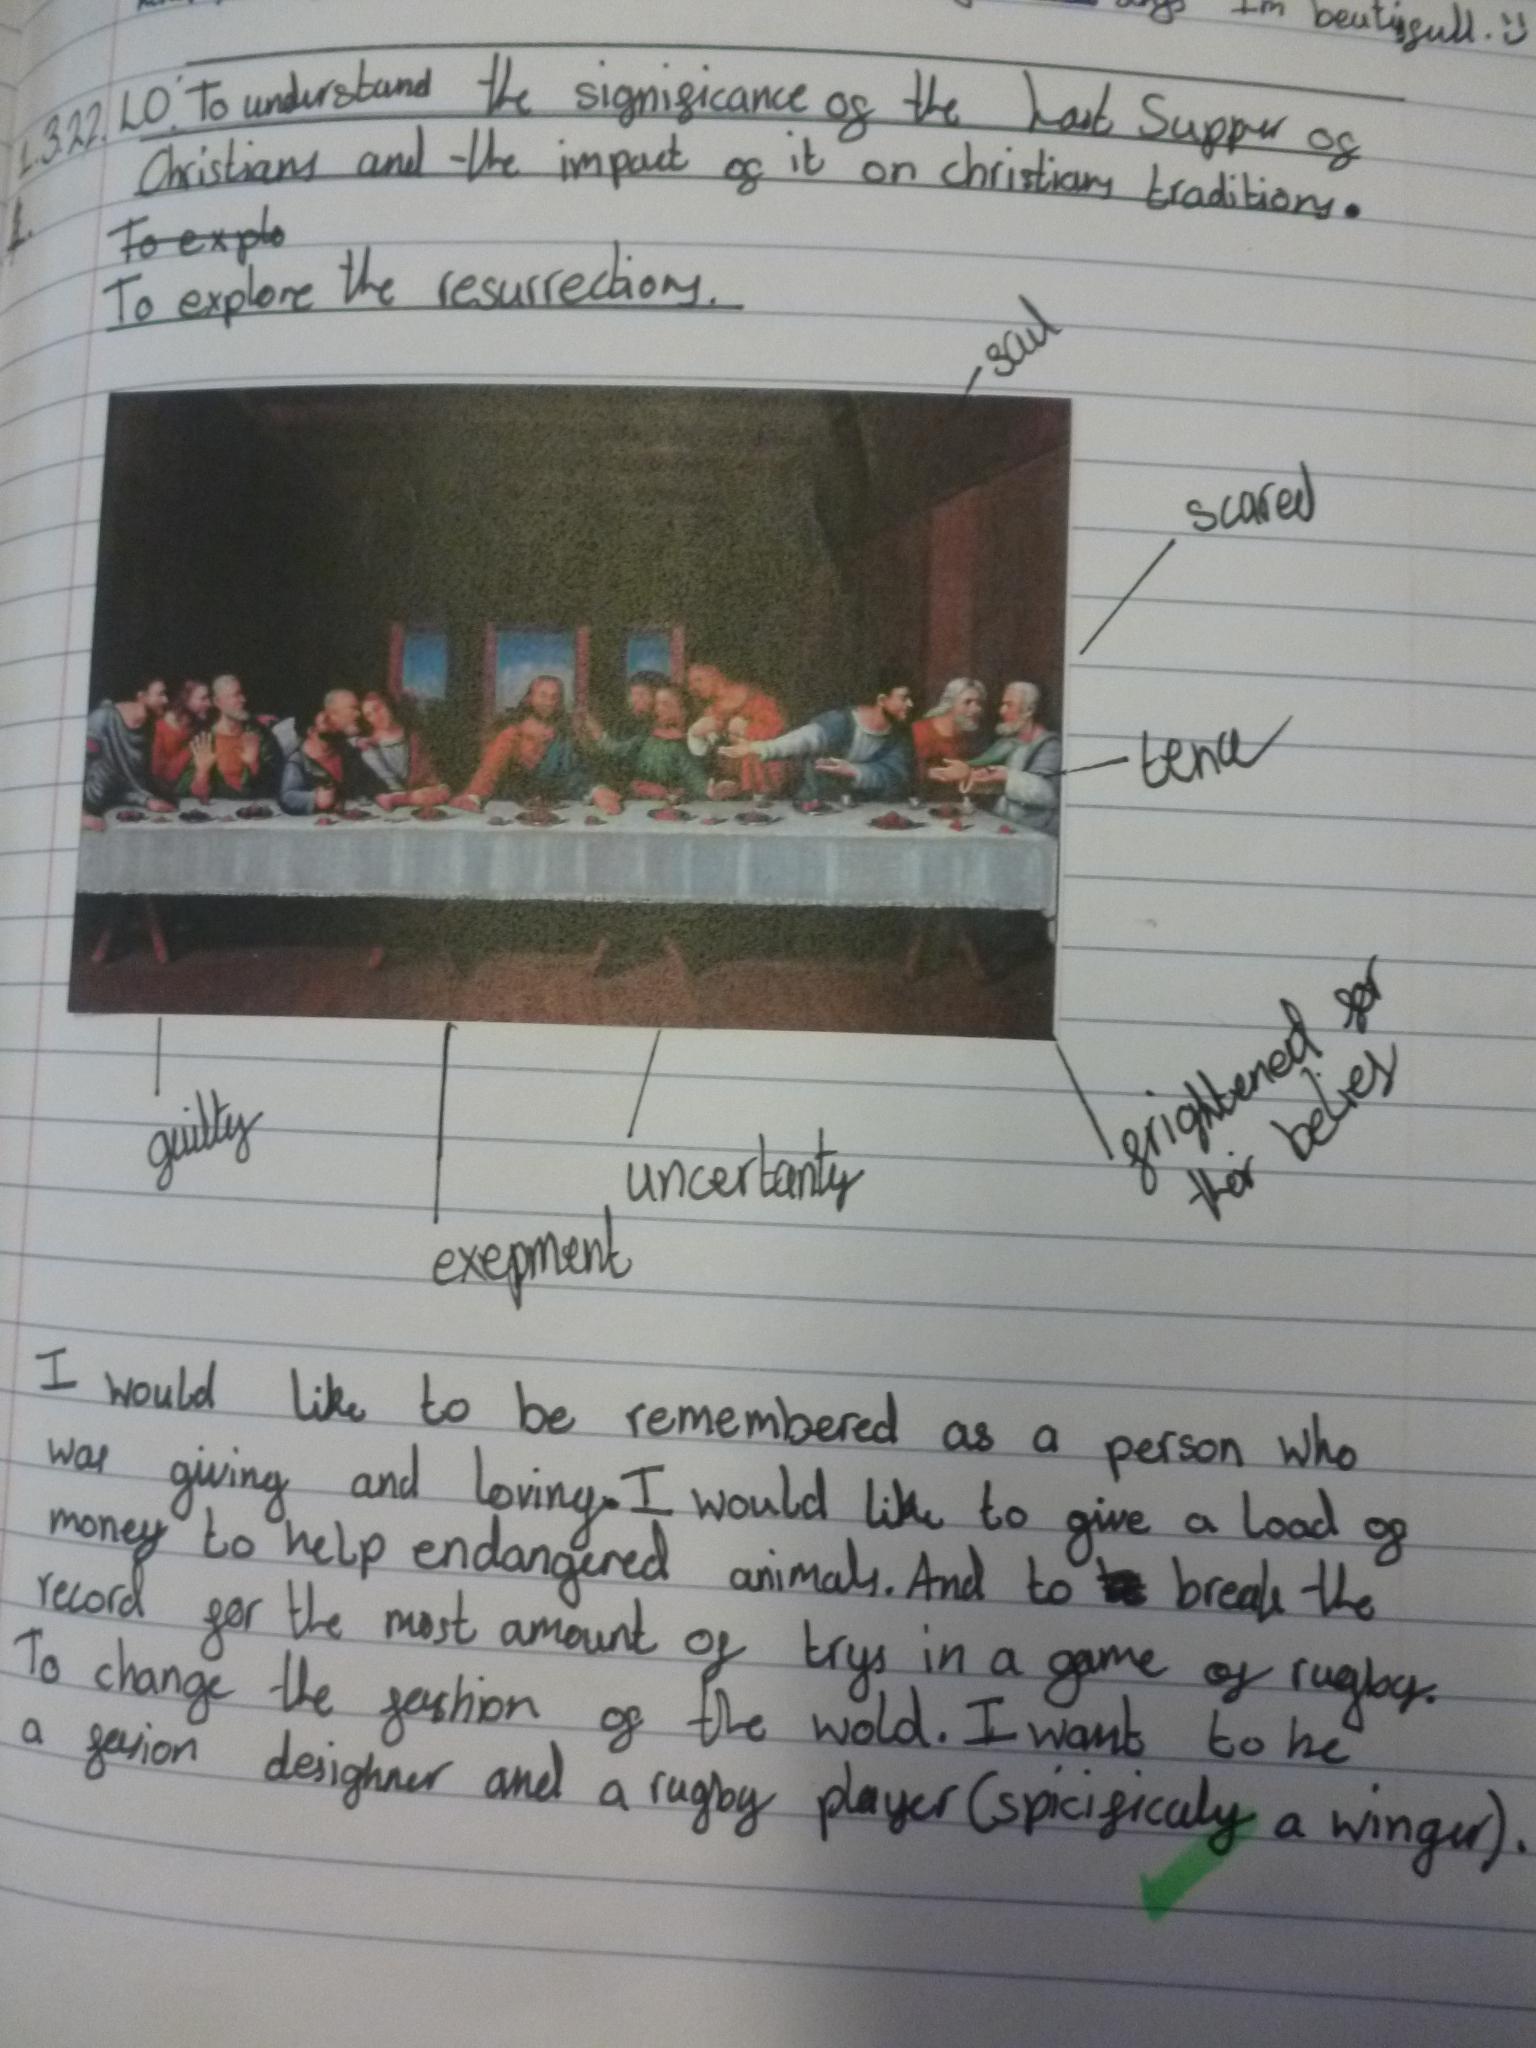 Im beutifull. :)
.3.22. LO: To understand the significance of the Last Supper of
Christians and the impact of it on christians traditions.
To explo
To explore the resurrections.
sad
scared
tence
frightened for
their belies
guilty
uncertanty
exepment
I would like to be remembered as a person who
was giving and loving. I would like to give a load of
money to help endangered animals. And to break the
record for the most amount of trys in a game of rugby.
To change the fashion of the wold. I want to be
a fasion desighner and a rugby player (spicificaly a winger).